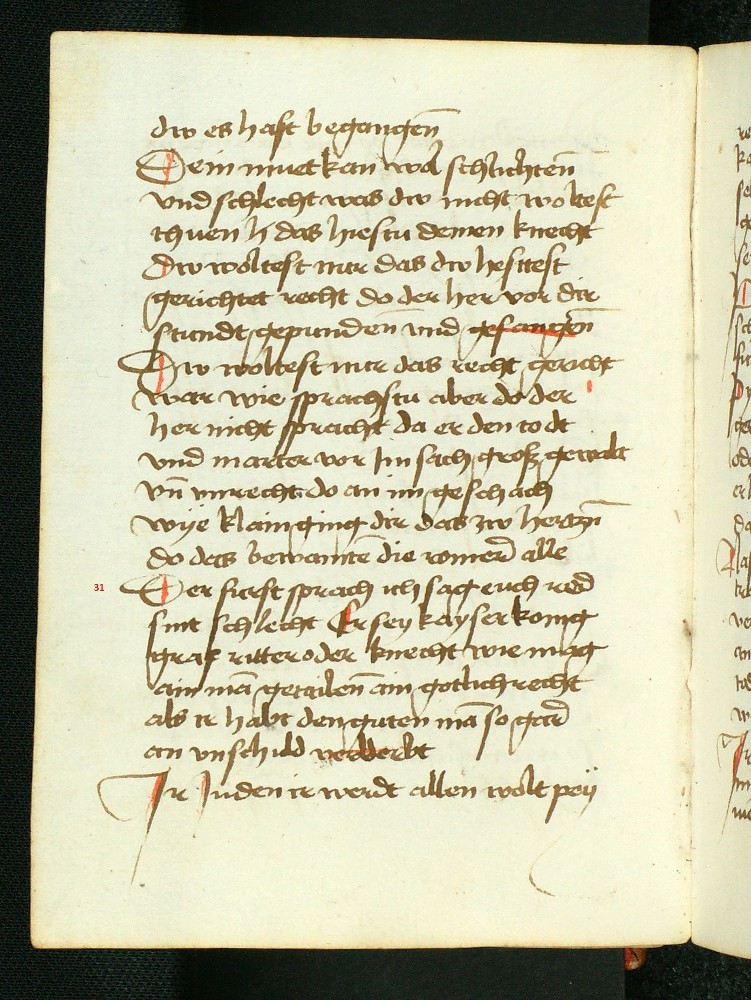 dw es hast begangen̄
Dein muet kan wol schlichten̄
vnd schlecht was dw nicht woltest
thuen h das hiestu deinen knecht
Dw woltest nur das dw hesttest
gerichtet recht do der her vor dir
stundt gepunden̄ vnd gefangen̄
Dw woltest nur das recht gericht
war wie sprachstu aber do der
her nicht spracht da er den todt
vnd marter vor Im sach groß gewalt
vn̄ vnrecht do an im geschach
wye klain ging dir das zw hertzn̄
do das bewainte die romer alle
31 Der furst sprach ich sag euch red
sint schlecht Er sey kayser konig
graf ritter oder knecht wie mag
ain ma̅ getailen̄ ain gotlich recht
als ir habt den guten ma̅ so gar
an vnschuld verderbt
Ir Juden ir werdt allen wolt pey